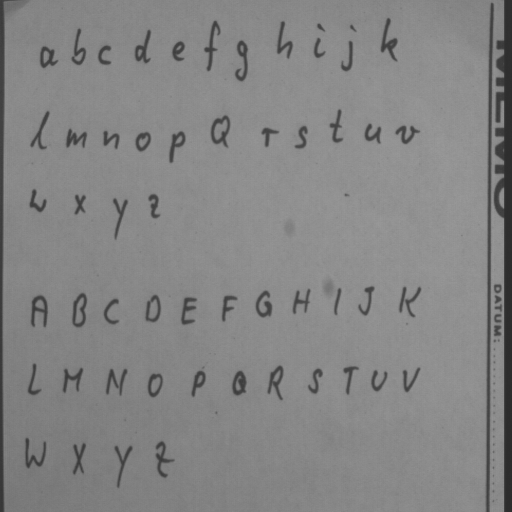 a b c d e f g h i j k
l m n o p Q r s t u v
w x y z
A B C D E F G H I J K
L M N O P Q R S T U V
W X Y Z
MEMO
DATUM: